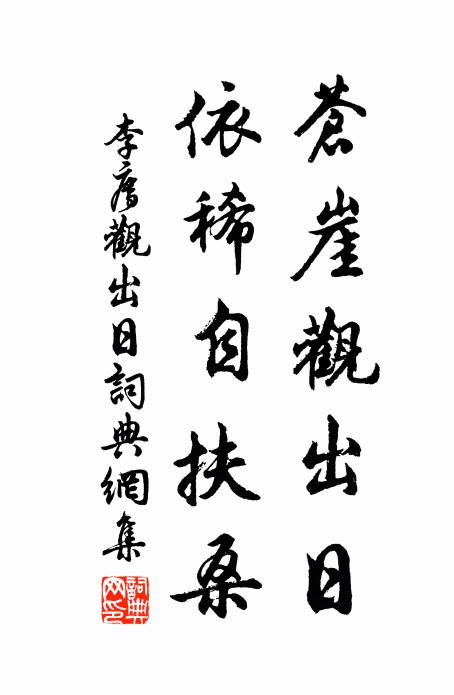 蒼崖觀出日
依稀自扶桑
李廌觀出日詞典網集
詞典网印